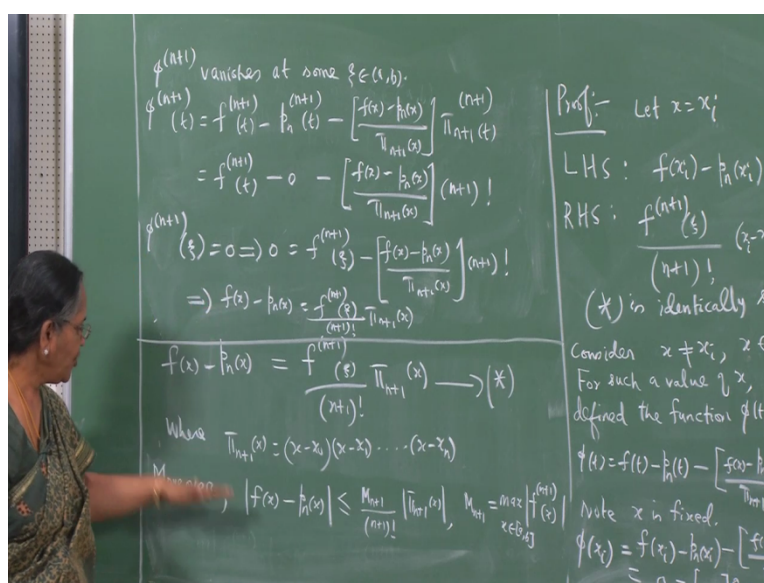 φ^(n+1) vanishes at some ξ∈(a,b).
φ^(n+1)(t) = f^(n+1)(t) - p_n^(n+1)(t) - [(f(x)-p_n(x))/Π_{n+1}(x)] Π_{n+1}^(n+1)(t)
= f^(n+1)(t) - 0 - [(f(x)-p_n(x))/Π_{n+1}(x)] (n+1)!
φ^(n+1)(ξ) = 0 => 0 = f^(n+1)(ξ) - [(f(x)-p_n(x))/Π_{n+1}(x)] (n+1)!
=> f(x)-p_n(x) = f^(n+1)(ξ)/(n+1)! Π_{n+1}(x)
f(x)-p_n(x) = f^(n+1)(ξ)/(n+1)! Π_{n+1}(x) → (*)
Where Π_{n+1}(x) = (x-x_0)(x-x_1).....(x-x_n)
|f(x)-p_n(x)| ≤ M_{n+1}/(n+1)! |Π_{n+1}(x)|, M_{n+1} = max x∈[a,b] |f^(n+1)(x)|
Proof:- Let x=x_i
LHS: f(x_i)-p_n(x_i)
RHS: f^(n+1)(ξ)/(n+1)! (x_i-x
(*) is identically s
Consider x≠x_i, x∈
For such a value of x,
defined the function φ(t
φ(t)=f(t)-p_n(t)-[f(x)-p_n
Note x is fixed.
φ(x_i) = f(x_i)-p_n(x_i)-[f(